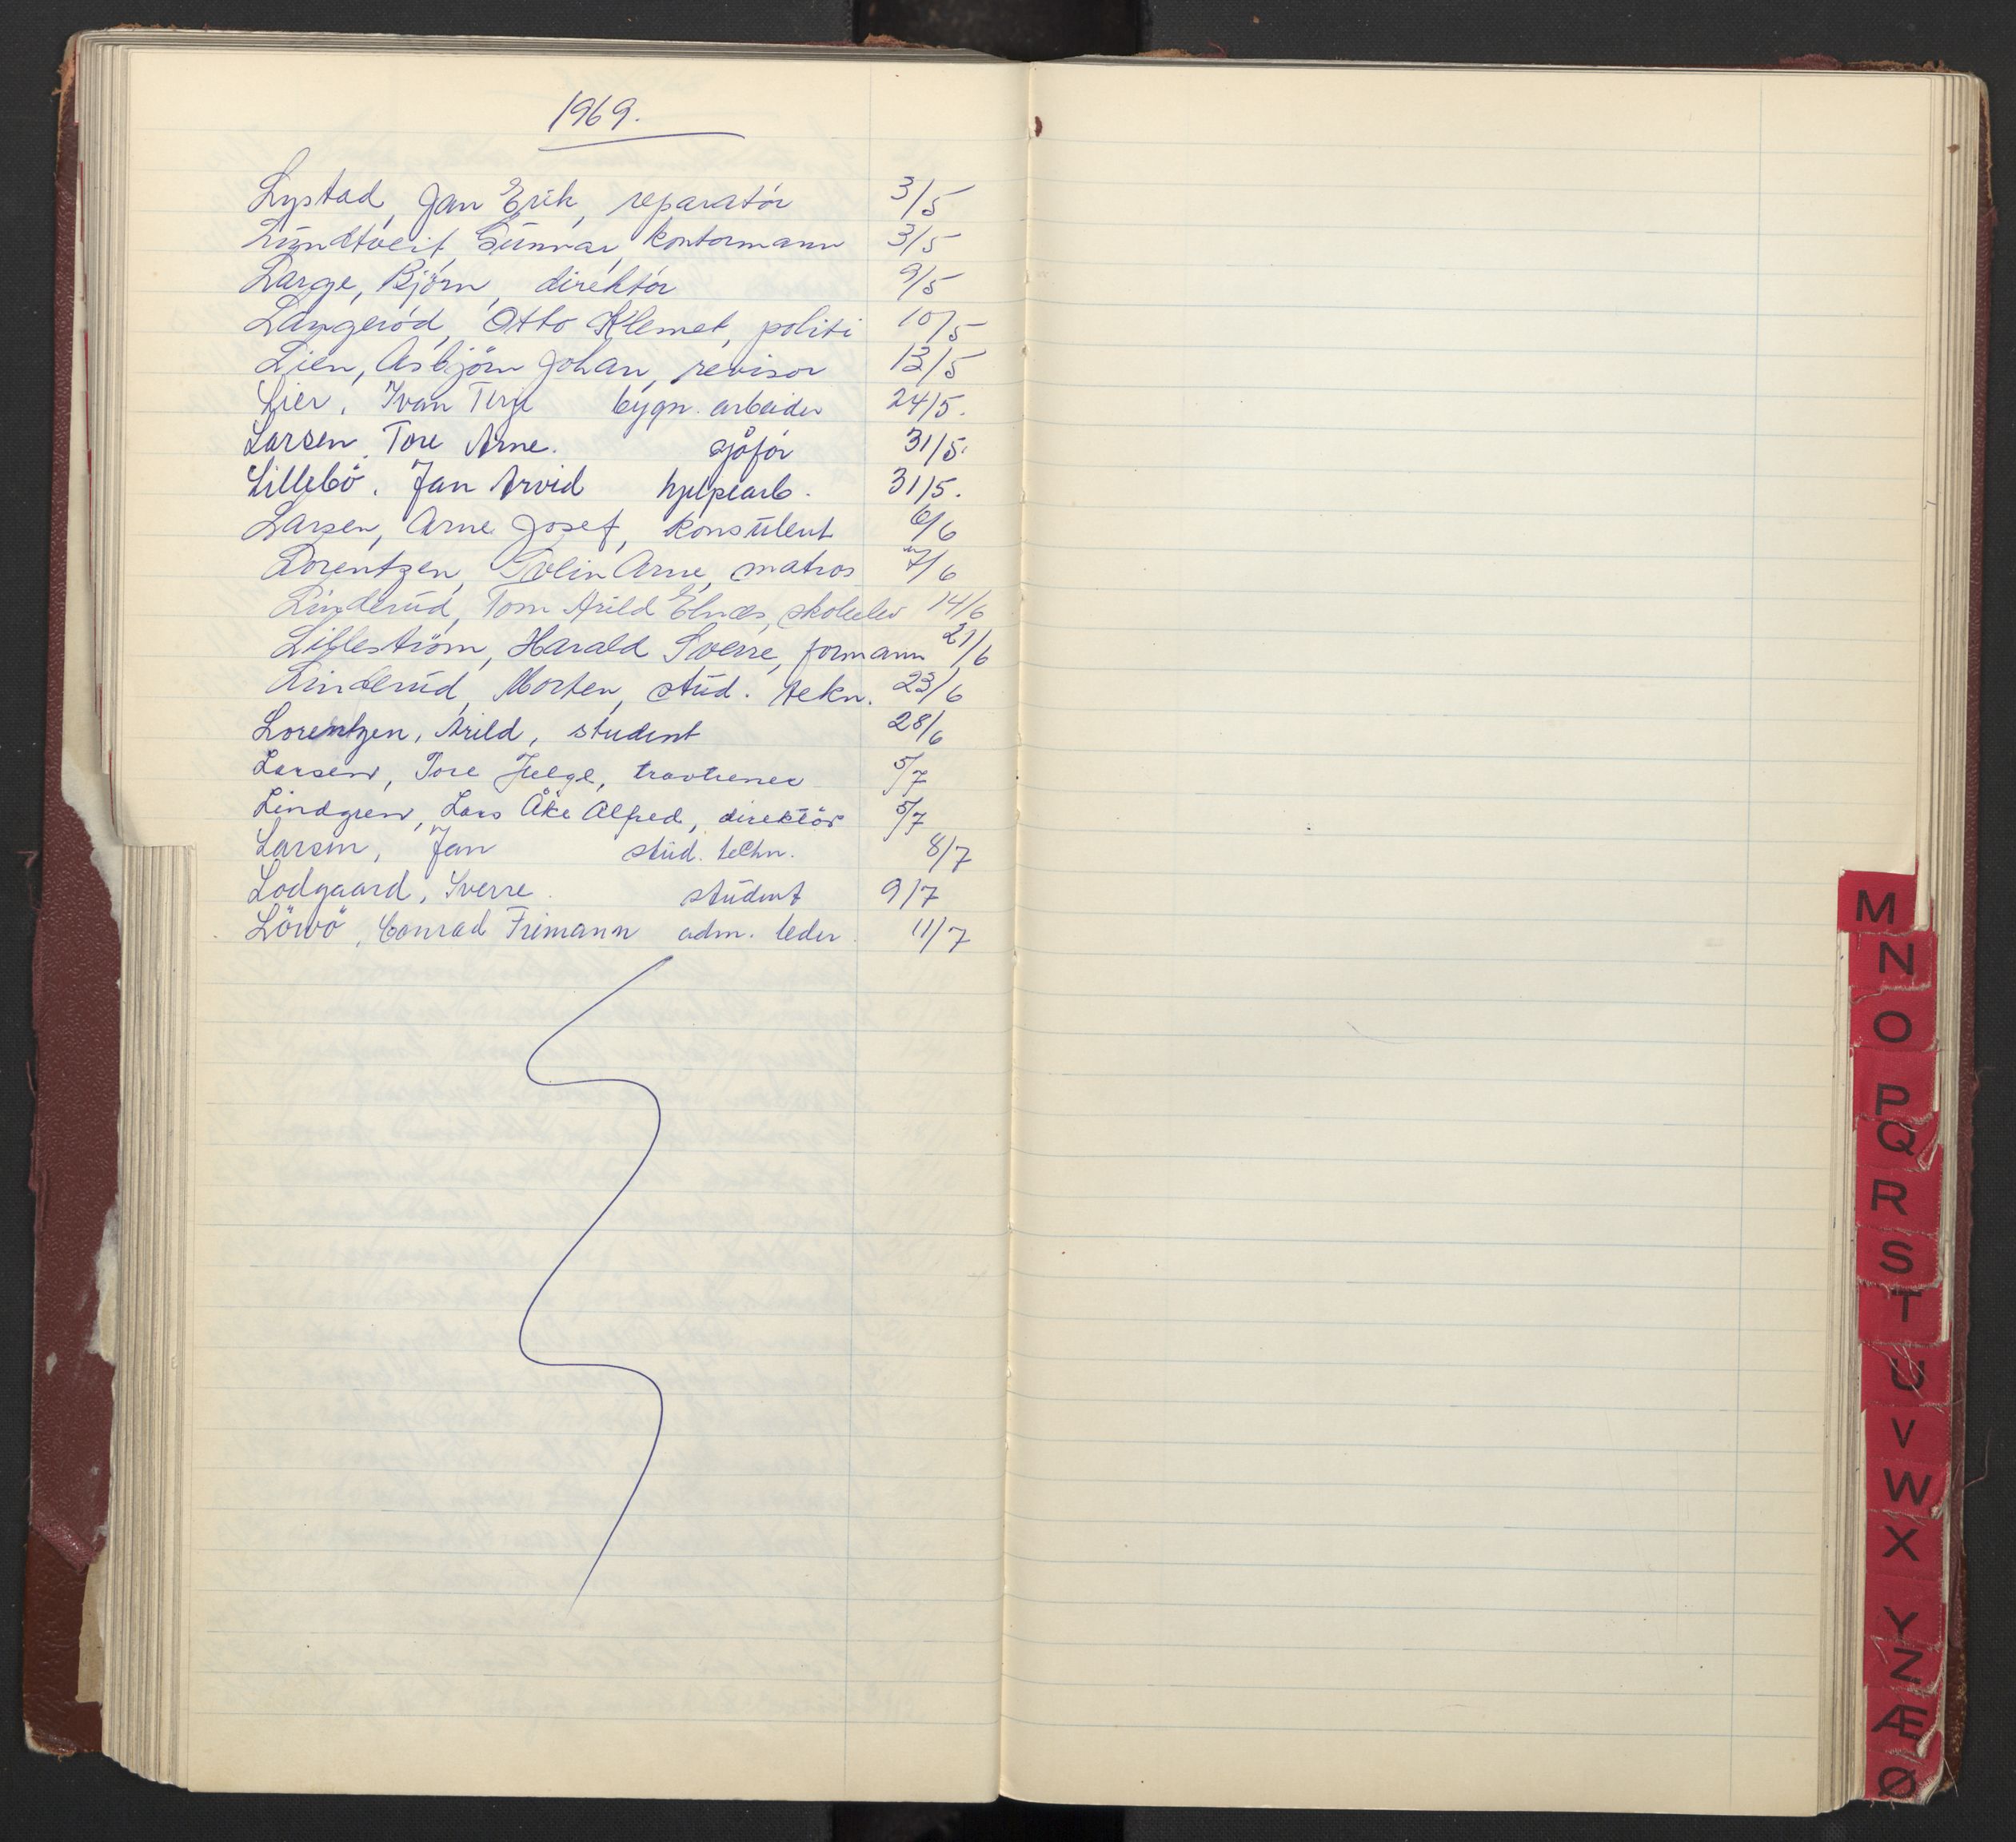 1969.
Lystad, Jan Erik, reparatör 3/5
Lundtveit, Gunnar, kontormann 3/5
Large, Björn, direktör 9/5
Langeröd, Otto Klemet, politi 10/5
Lien, Asbjörn Johan, revisor 13/5
Lier, Ivan Terje bygn. arbeider 24/5.
Larsen, Tore Arne. sjåför 31/5.
Lillebö, Jan Arvid hjelpearb. 31/5.
Larsen, Arne Josef, konsulent 6/6
Lorentzen, Arne, matros 7/6
Linderud, Tom Arild Elnæs, skoleelev 14/6
Lilleström, Harald Sverre, formann 21/6
Linderud, Morten, stud. tekn. 23/6
Lorentzen, Arild, student 28/6
Larsen, Tore Helge, travtrener 5/7
Lindgren, Lars Åke Alfred, direktör 5/7
Larsen, Jan stud. techn. 8/7
Lodgaard, Sverre. student 9/7
Lövö, Conrad Frimann adm. leder. 11/7
M
N
O
P
Q
R
S
T
U
V
W
X
Y
Z
Æ
Ø